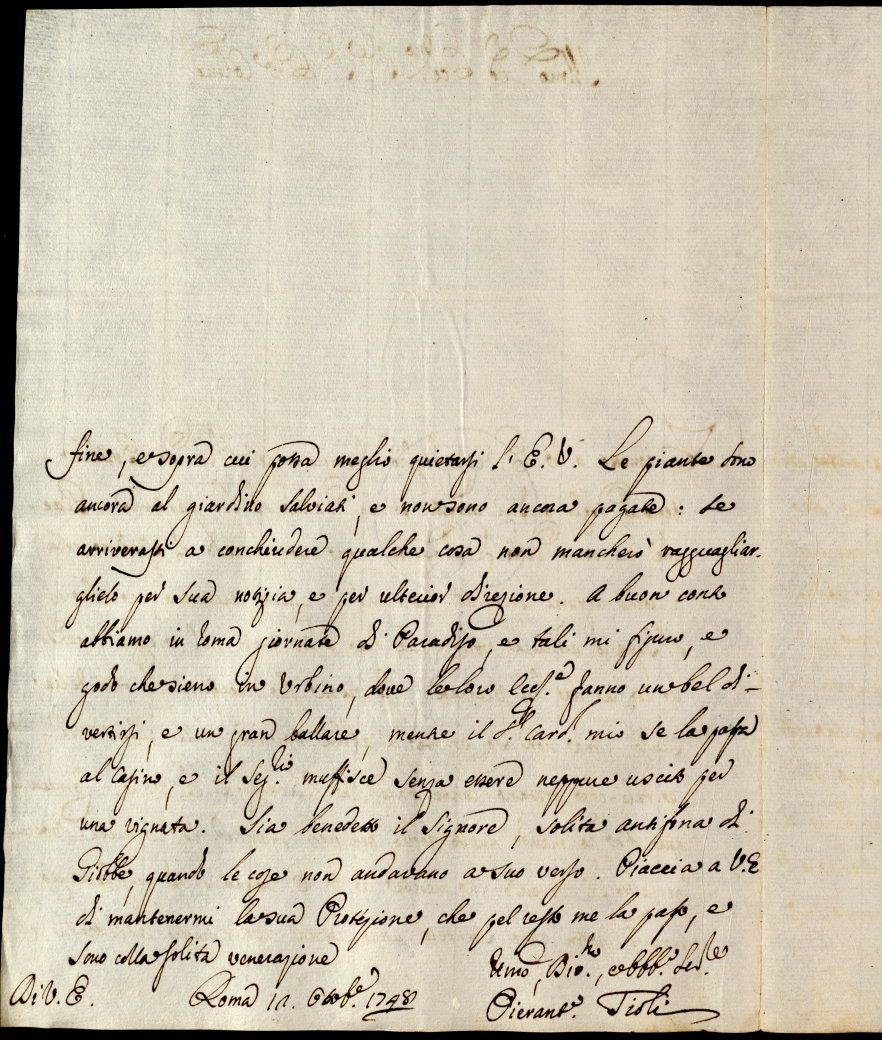 fine, e sopra cui possa meglio quietarsi l'E. V. Le piante sono
ancora al giardino Salviati, e non sono ancora pagate: se
arriverassi a conchiudere qualche cosa non mancherò ragguagliar-
glielo per sua notizia, e per ulterior direzione. A buon conto
abbiamo in Roma giornate di Paradiso, e tali mi figuro, e
godo che sieno in Urbino, dove le loro Eccel.e fanno un bel di-
vertirsi, e un gran ballare, mentre il S.r Card.l mio se la passa
al Casino, e il Seg.rio muffisce senza essere neppure uscito per
una vignata. Sia benedetto il Signore, solita antifona di
Giobbe, quando le cose non andavano a suo verso. Piaccia a V.E
di mantenermi la sua Protezione, che pel resto me la passo, e
sono colla solita venerazione
Umo, Div.mo, e obbb.o Ser.re
Di V. E. Roma 12. Ottob.e 1748
Pierant.o Tioli